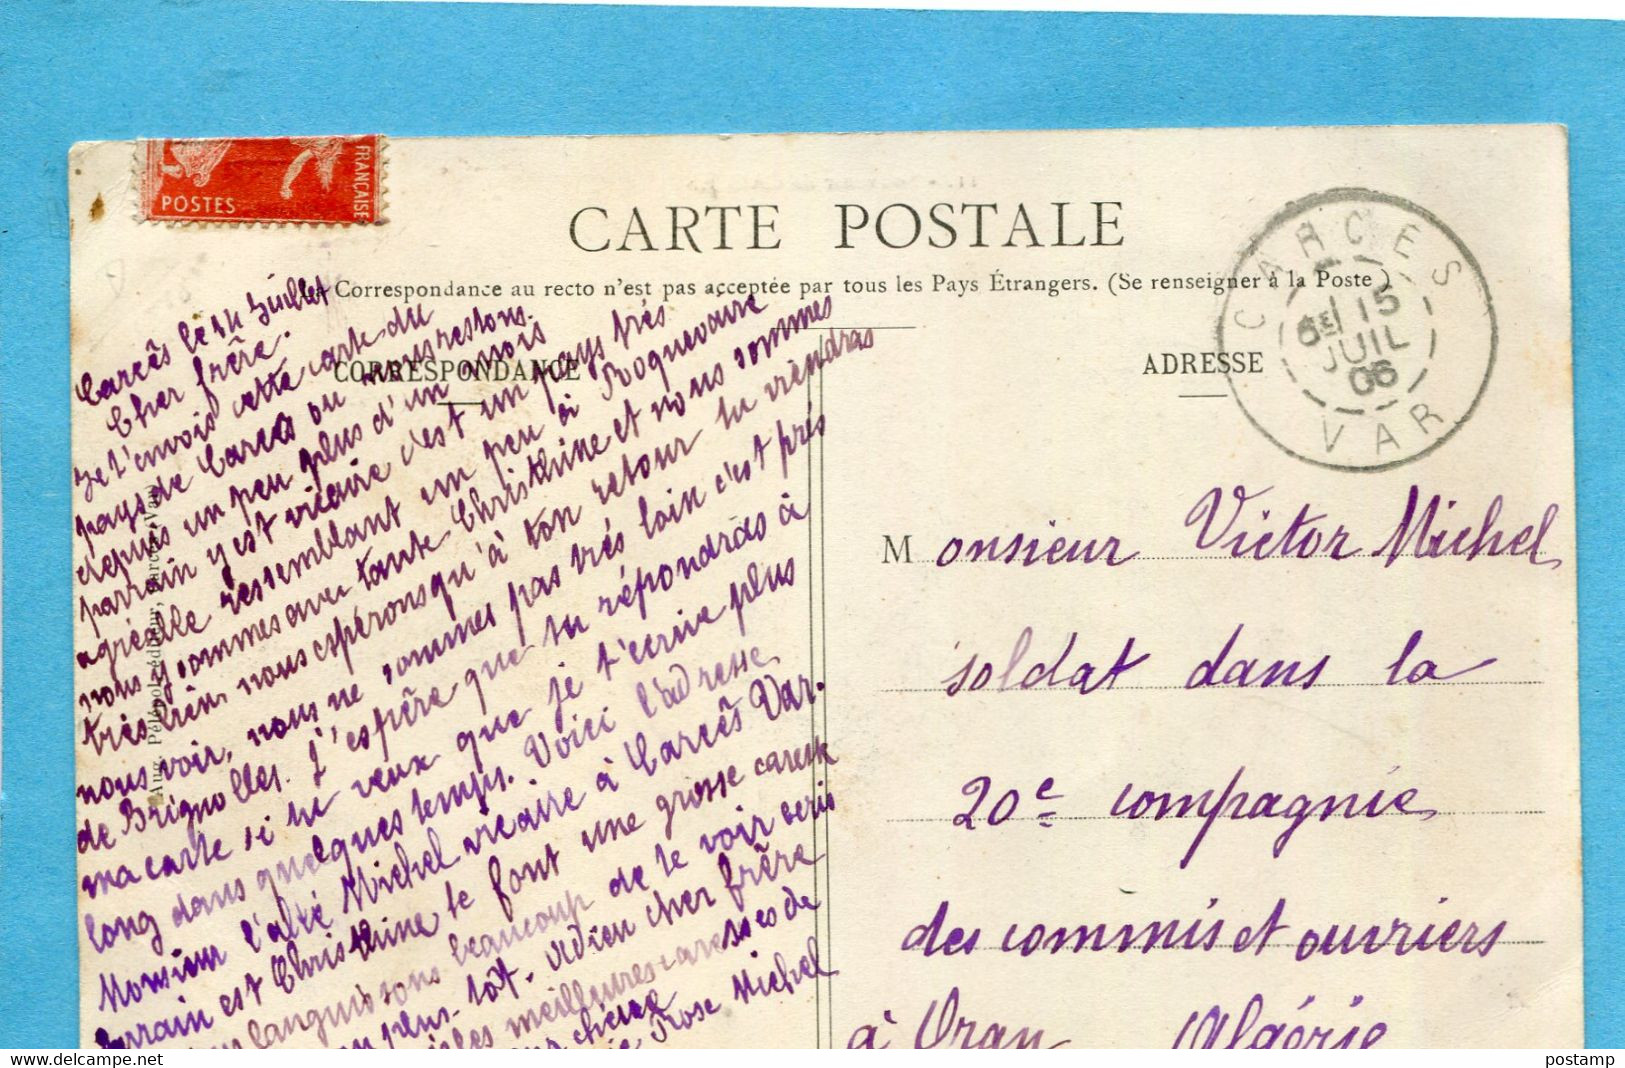 FRANÇAISE
POSTES
CARTE POSTALE
La Correspondance au recto n'est pas acceptée par tous les Pays Étrangers. (Se renseigner à la Poste)
CORRESPONDANCE
ADRESSE
CARCES
6E 15
JUIL
06
VAR
Carcès le 14 Juillet
Cher frère.
Je t'envois cette carte du
pays de Carces ou nous restons.
depuis un peu plus d'un mois
parrain y est vicaire c'est un pays très
agréable ressemblant un peu à Roquevaire
nous y sommes avec tante Christhine et nous sommes
très bien nous espérons qu'à ton retour tu viendras
nous voir, nous ne sommes pas très loin c'est près
de Brignolles. J'espère que tu répondras à
ma carte si tu veux que je t'écrive plus
long dans quelques temps. Voici l'adresse
Monsieur l'abbé Michel vicaire à Carcès Var.
Parrain et Christhine te font une grosse caresse
languissons beaucoup de te voir
plus tôt. Adieu cher frère
meilleures caresses de
chérie
Rose Michel
Aug. édieur, Carcès (Var)
Monsieur Victor Michel
soldat dans la
20e compagnie
des commis et ouvriers
à Oran Algérie
Delcampe.net
postamp